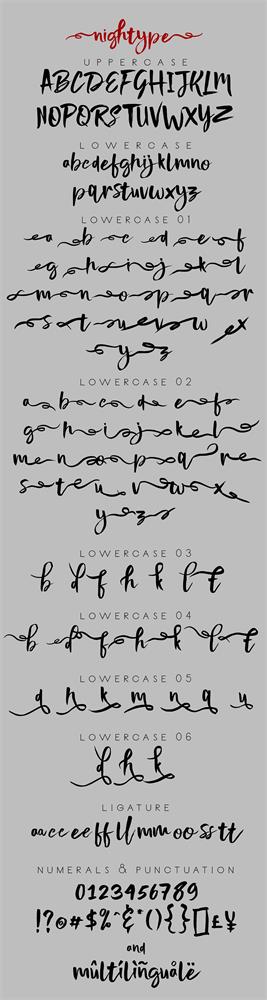 nightype
UPPERCASE
ABCDEFGHIJKLM
NOPQRSTUVWXYZ
LOWERCASE
abcdefghijklmno
pqrstuvwxyz
LOWERCASE 01
a b c d e f
g h i j k l
m n o p q r
s t u v w x
y z
LOWERCASE 02
a b c d e f
g h i j k l
m n o p q r
s t u v w x
y z
LOWERCASE 03
b d f h k l t
LOWERCASE 04
b d f h k l t
LOWERCASE 05
a h k m n q u
LOWERCASE 06
d h k
LIGATURE
aa cc ee ff ll mm oo ss tt
NUMERALS & PUNCTUATION
0123456789
!?@#$%^&*(){}[]£¥
and
mûltílìñguåLë